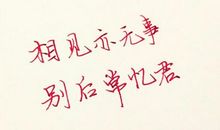 相见亦无事
别后常忆君